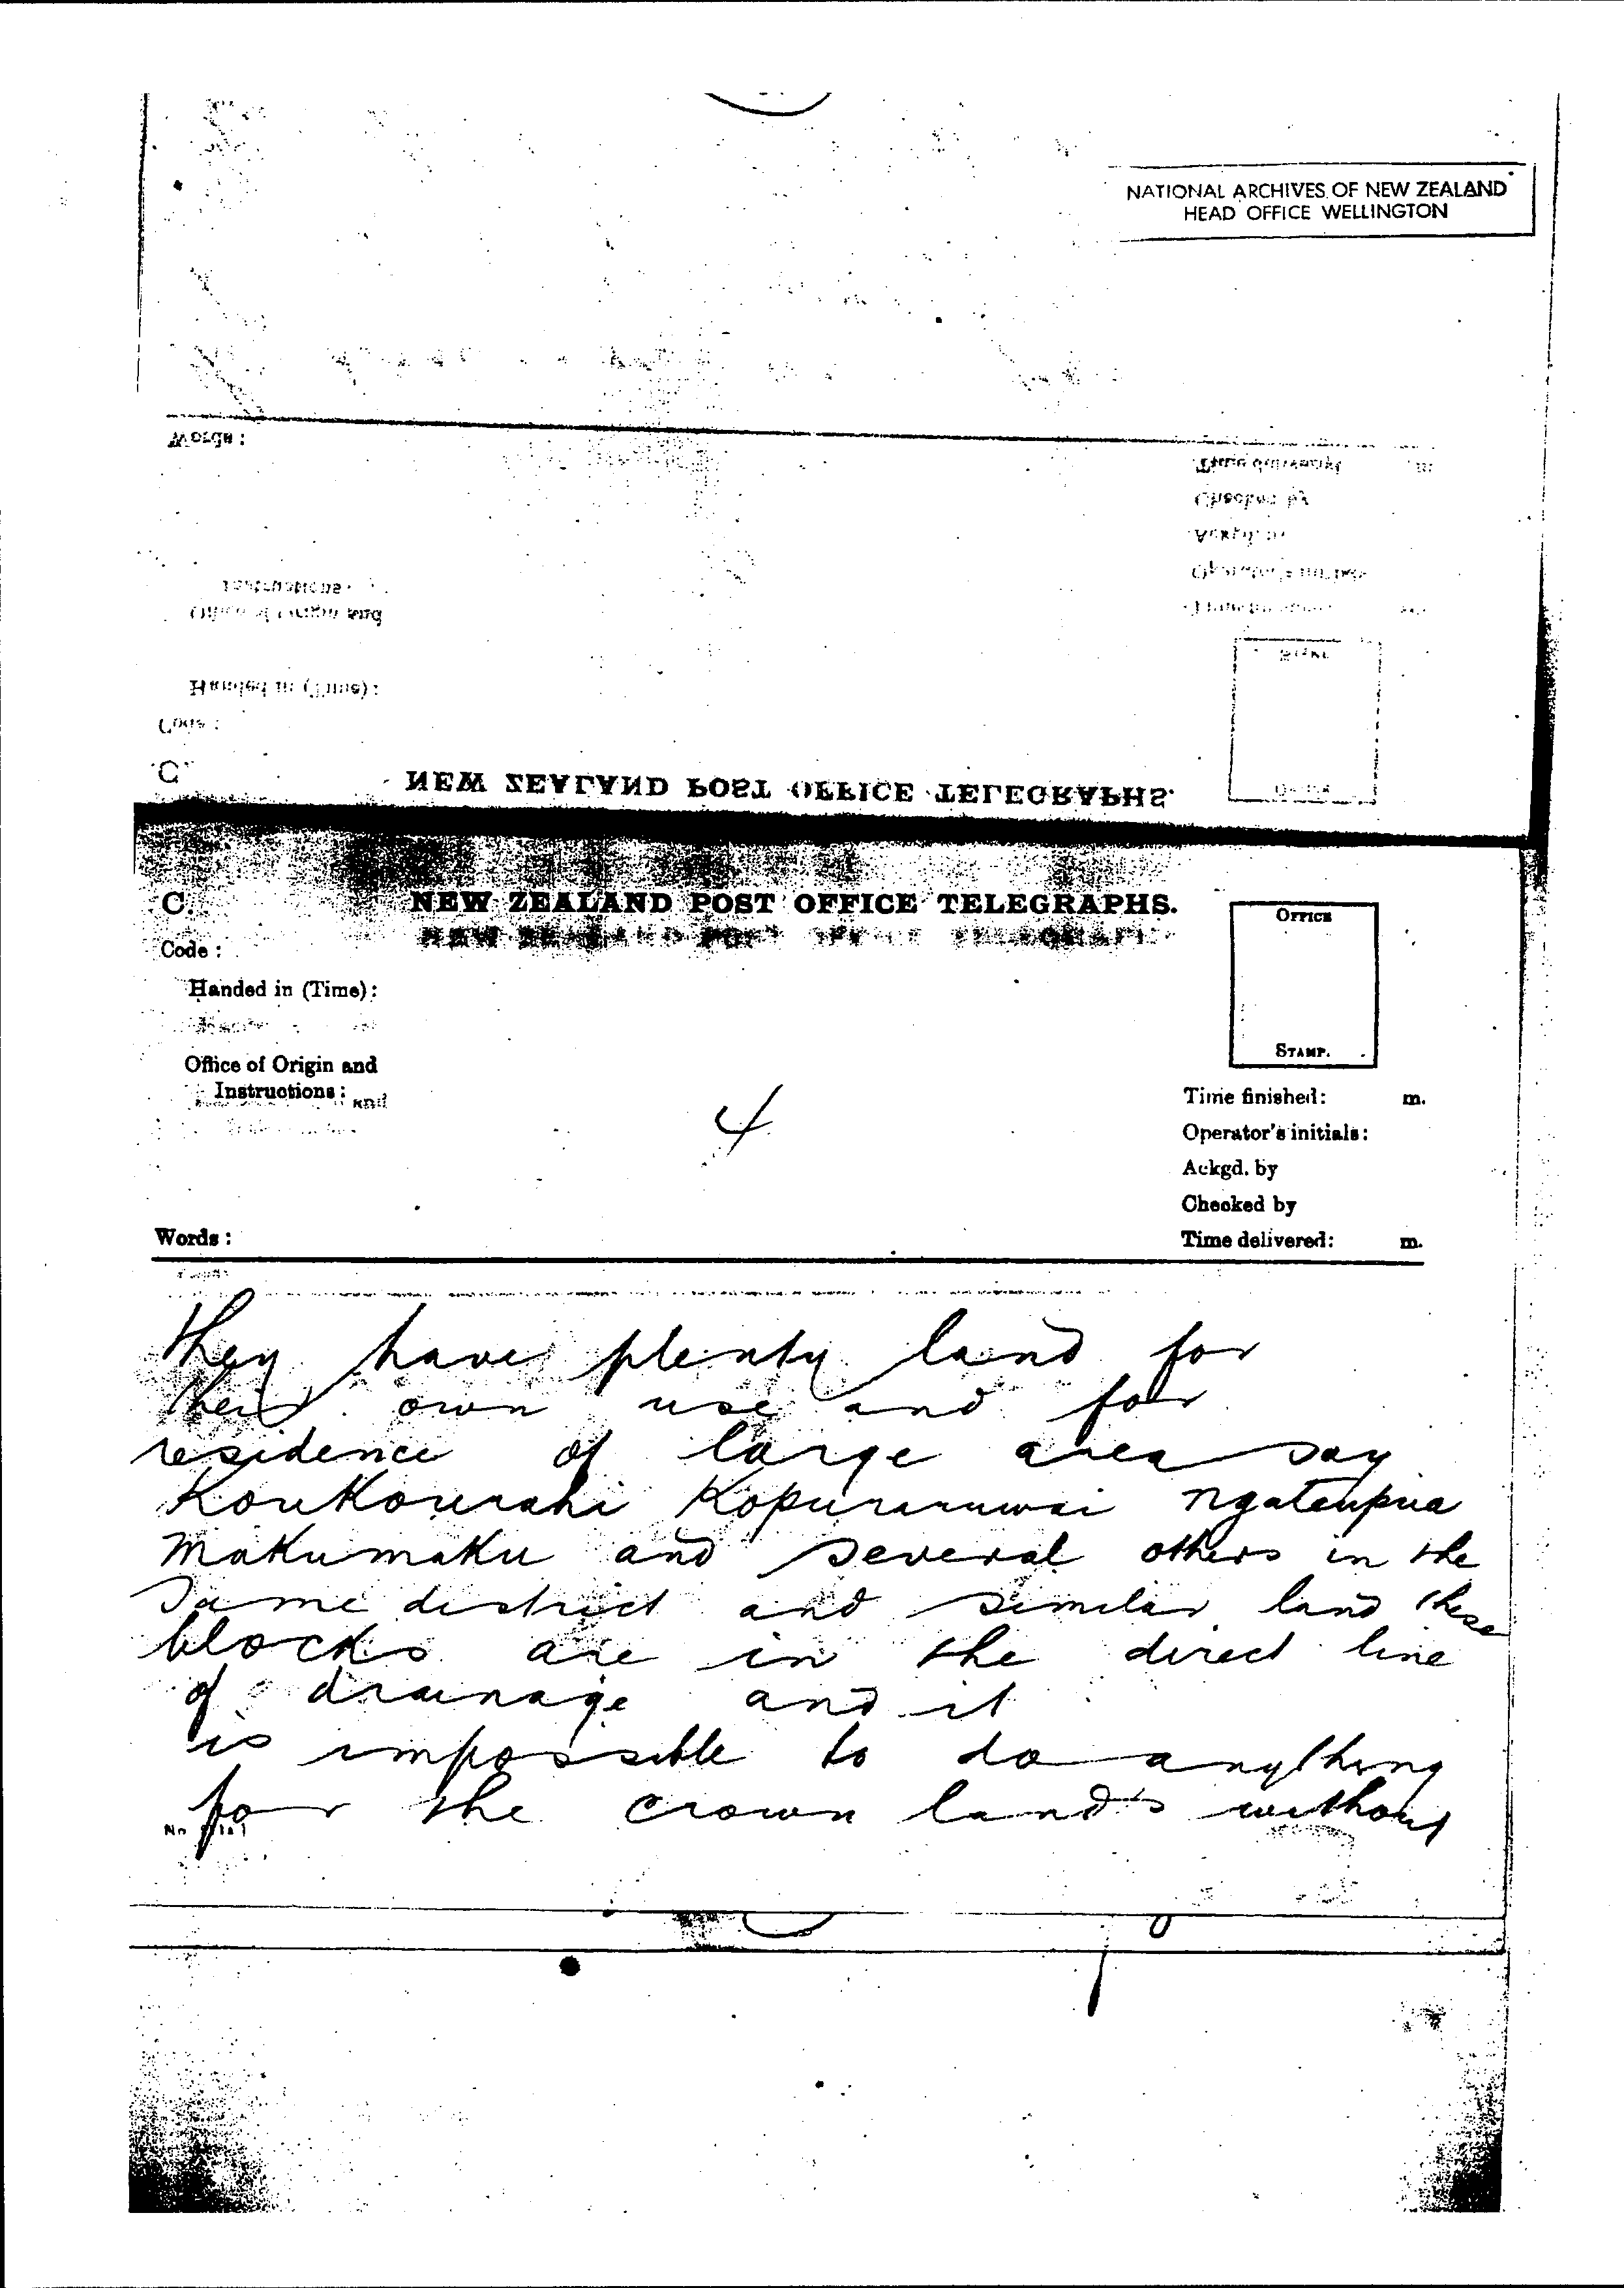 NATIONAL ARCHIVES OF NEW ZEALAND
HEAD OFFICE WELLINGTON
C.
NEW ZEALAND POST OFFICE TELEGRAPHS.
OFFICE
Code :
Handed in (Time) :
Office of Origin and
Instructions :
STAMP.
4
Time finished: m.
Operator's initials:
Ackgd. by
Checked by
Words :
Time delivered: m.
they have plenty land for
their own use and for
residence of large area say
Koukourahi Kopuraruwai Ngataupua
Makumaku and several others in the
same district and similar land these
blocks are in the direct line
of drainage and it
is impossible to do anything
for the crown lands without